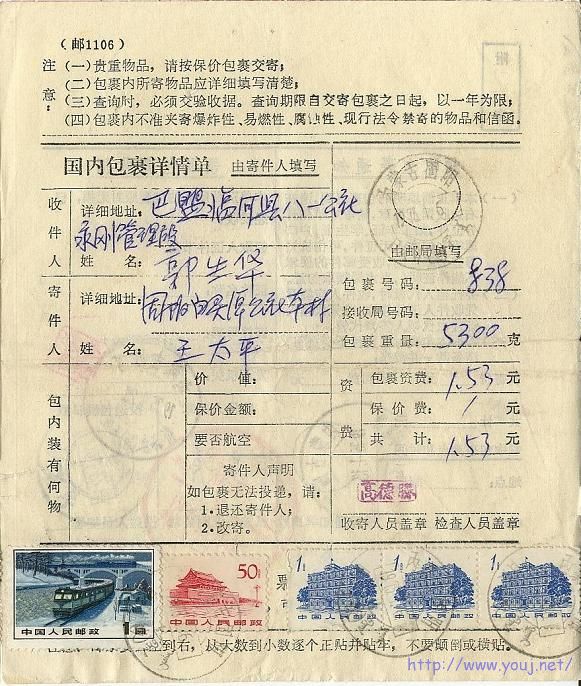 (邮1106)
注意：
(一)贵重物品，请按保价包裹交寄；
(二)包裹内所寄物品应详细填写清楚；
(三)查询时，必须交验收据。查询期限自交寄包裹之日起，以一年为限；
(四)包裹内不准夹寄爆炸性、易燃性、腐蚀性、现行法令禁寄的物品和信函。
国内包裹详情单 由寄件人填写
收件人
详细地址：巴盟临河县八一公社
永刚管理段
姓 名：郭生华
寄件人
详细地址：
姓 名：王太平
由邮局填写
包裹号码：838
接收局号码：
包裹重量：5300克
包内装有何物
价 值：
保价金额：
要否航空
寄件人声明
如包裹无法投递，请：
1.退还寄件人；
2.改寄。
资费
包裹资费：1.53元
保价费：/元
共 计：1.53元
高德胜
收寄人员盖章 检查人员盖章
中国人民邮政 1圆
50分 中国人民邮政
1分 中国人民邮政
1分 中国人民邮政
1分 中国人民邮政
到右，以大数到小数逐个正贴并贴牢，不要颠倒或横贴。
http://www.youj.net/